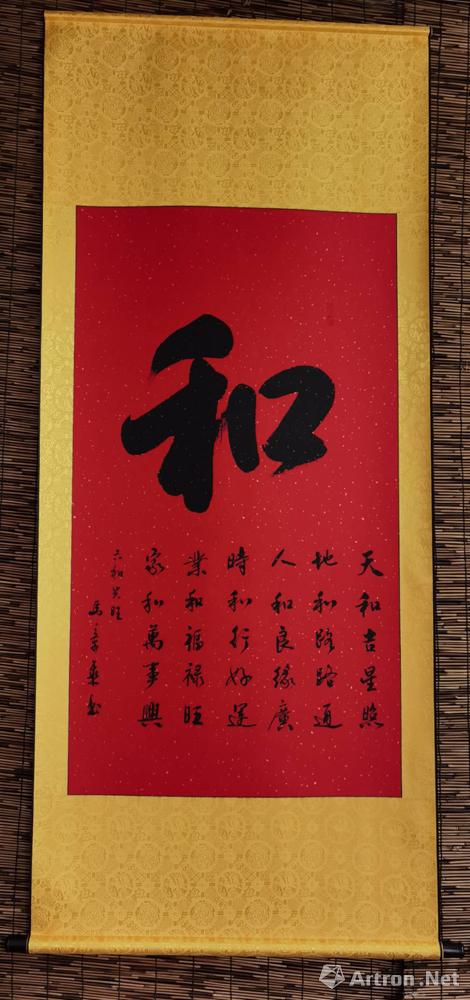 和
天和吉星照
地和路路通
人和良缘廣
時和行好運
業和福禄旺
家和萬事興
六和興旺
Artron.Net